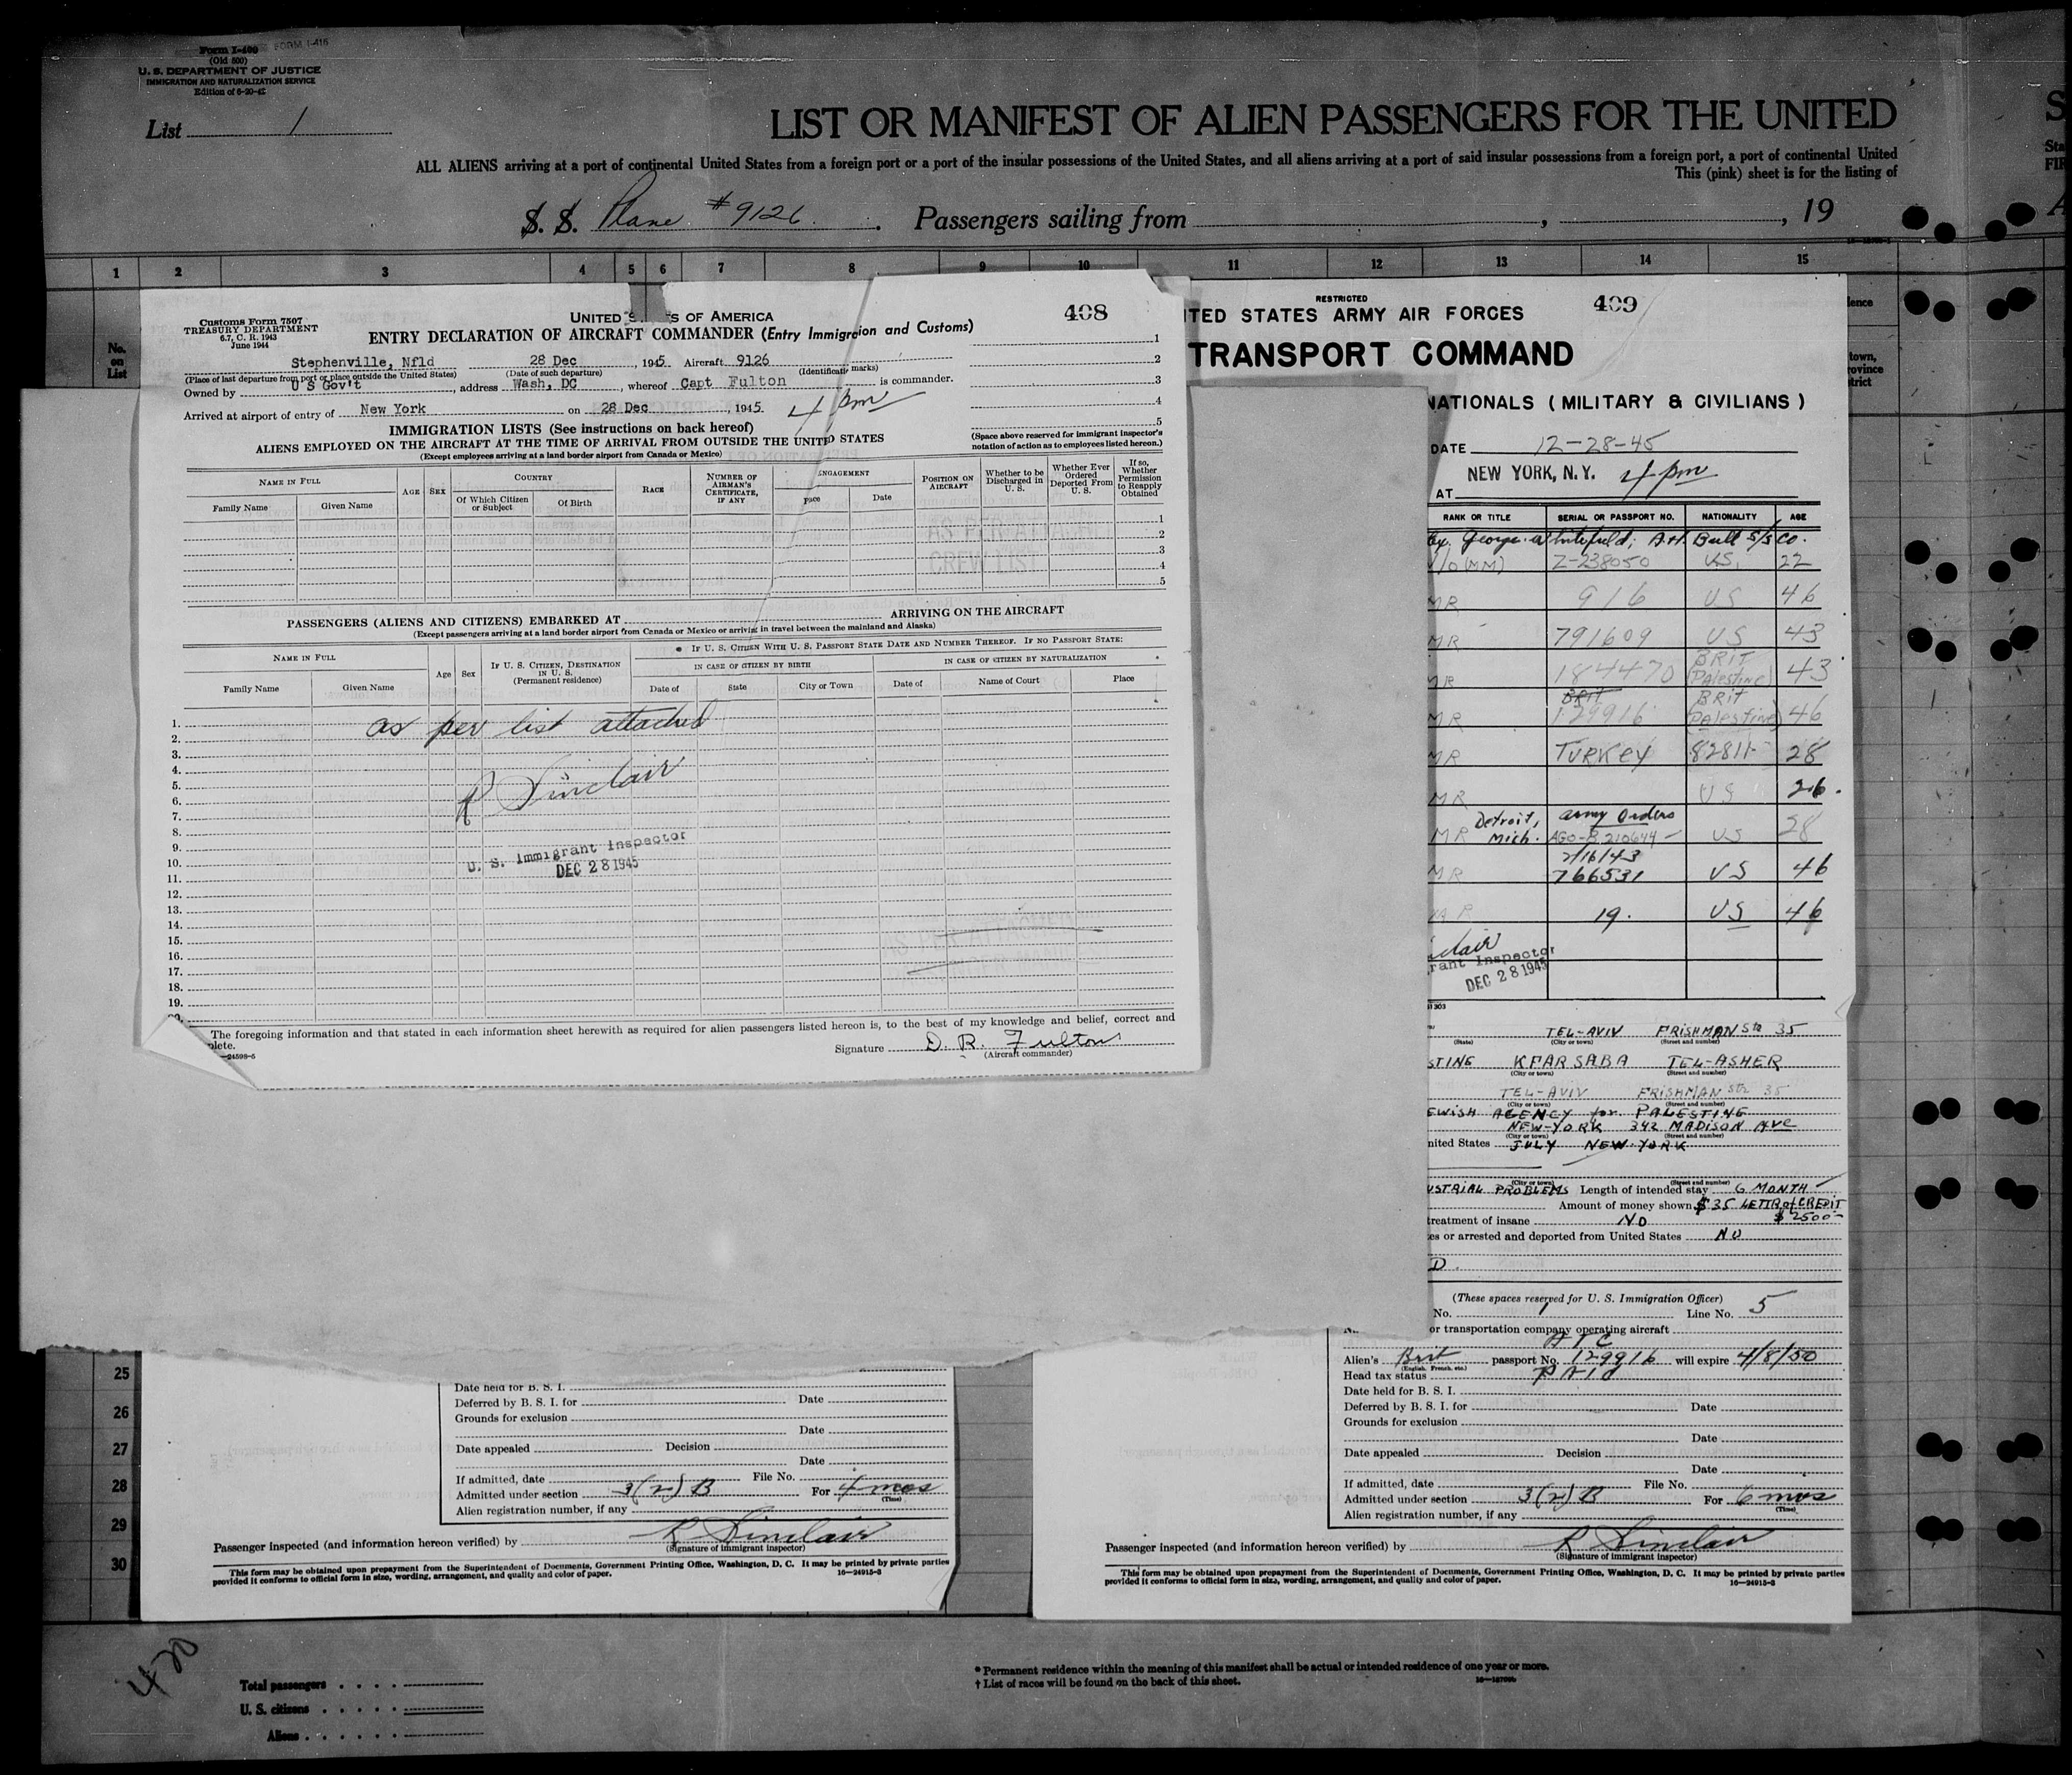 Form I-400 FORM I-415
(Old 500)
U. S. DEPARTMENT OF JUSTICE
IMMIGRATION AND NATURALIZATION SERVICE
Edition of 6-20-42
List 1
LIST OR MANIFEST OF ALIEN PASSENGERS FOR THE UNITED
ALL ALIENS arriving at a port of continental United States from a foreign port or a port of the insular possessions of the United States, and all aliens arriving at a port of said insular possessions from a foreign port, a port of continental United
This (pink) sheet is for the listing of
S. S. Plane #9126. Passengers sailing from , , 19
1 2 3 4 5 6 7 8 9 10 11 12 13 14 15
No.
on
List
408
Customs Form 7507
TREASURY DEPARTMENT
6.7, C. R. 1943
June 1944
UNITED S S OF AMERICA
ENTRY DECLARATION OF AIRCRAFT COMMANDER (Entry Immigr ion and Customs)
Stephenville, Nfld 28 Dec , 1945 Aircraft 9126
(Place of last departure from port or place outside the United States) (Date of such departure) (Identificati marks)
Owned by U S Gov't , address Wash, DC , whereof Capt Fulton is commander.
Arrived at airport of entry of New York on 28 Dec , 1945. 4 pm
IMMIGRATION LISTS (See instructions on back hereof)
ALIENS EMPLOYED ON THE AIRCRAFT AT THE TIME OF ARRIVAL FROM OUTSIDE THE UNIT D STATES
(Except employees arriving at a land border airport from Canada or Mexico)
1
2
3
4
5
(Space above reserved for immigrant inspector's
notation of action as to employees listed hereon.)
NAME IN FULL
Family Name Given Name
AGE SEX
COUNTRY
Of Which Citizen or Subject Of Birth
RACE
NUMBER OF AIRMAN'S CERTIFICATE, IF ANY
ENGAGEMENT
Place Date
POSITION ON AIRCRAFT
Whether to be Discharged in U. S.
Whether Ever Ordered Deported From U. S.
If so, Whether Permission to Reapply Obtained
AS PER ATTACHED
CREW LIST
1
2
3
4
5
PASSENGERS (ALIENS AND CITIZENS) EMBARKED AT ARRIVING ON THE AIRCRAFT
(Except passengers arriving at a land border airport from Canada or Mexico or arriving in travel between the mainland and Alaska)
NAME IN FULL
Family Name Given Name
Age Sex
IF U. S. CITIZEN, DESTINATION IN U. S.
(Permanent residence)
* IF U. S. CITIZEN WITH U. S. PASSPORT STATE DATE AND NUMBER THEREOF. IF NO PASSPORT STATE:
IN CASE OF CITIZEN BY BIRTH IN CASE OF CITIZEN BY NATURALIZATION
Date of State City or Town Date of Name of Court Place
1.
2. as per list attached
3.
4.
5. R Sinclair
6.
7.
8.
9.
10. U. S. Immigrant Inspector
11. DEC 28 1945
12.
13.
14.
15.
16.
17.
18.
19.
The foregoing information and that stated in each information sheet herewith as required for alien passengers listed hereon is, to the best of my knowledge and belief, correct and
plete.
Signature D. R. Fulton
(Aircraft commander)
—24598-6
RESTRICTED
409
ITED STATES ARMY AIR FORCES
TRANSPORT COMMAND
NATIONALS ( MILITARY & CIVILIANS )
DATE 12-28-45
NEW YORK, N.Y. 4 pm
AT
RANK OR TITLE SERIAL OR PASSPORT NO. NATIONALITY AGE
Ex. George Whitefield; A.H. Bull S/S Co.
(MM) Z-238050 US. 22
MR 916 US 46
MR 791609 US 43
MR 184470 BRIT (Palestine) 43
MR BRIT 129916 BRIT (Palestine) 46
MR TURKEY 82811- 28
MR US 26.
MR Detroit, Mich. army orders AGO-B 210644- US 28
MR 2/16/43 766531 US 46
MR 19. US 46
clair
rant Inspector
DEC 28 1945
TEL-AVIV FRISHMAN Str 35
(State) (City or town) (Street and number)
STINE KFAR SABA TEL-ASHER
(City or town) (Street and number)
TEL-AVIV FRISHMAN Str 35
(City or town) (Street and number)
EWISH AGENCY for PALESTINE
NEW-YORK 342 MADISON AVE
(City or town) (Street and number)
nited States JULY NEW-YORK
(City or town) (Street and number)
USTRIAL PROBLEMS Length of intended stay 6 MONTH
Amount of money shown $35 LETTR of CREDIT
$2500-
treatment of insane NO
es or arrested and deported from United States NO
D.
(These spaces reserved for U. S. Immigration Officer)
No. 1 Line No. 5
or transportation company operating aircraft
ATC
Alien's Brit passport No. 129916 will expire 4/8/50
(English, French, etc.)
Head tax status Paid
Date held for B. S. I.
Deferred by B. S. I. for Date
Grounds for exclusion
Date
Date appealed Decision
Date
If admitted, date File No.
Admitted under section 3(2) B For 6 mos
(Time)
Alien registration number, if any
Passenger inspected (and information hereon verified) by R Sinclair
(Signature of immigrant inspector)
This form may be obtained upon prepayment from the Superintendent of Documents, Government Printing Office, Washington, D. C. It may be printed by private parties
provided it conforms to official form in size, wording, arrangement, and quality and color of paper. 16—24915-3
25
26
27
28
29
30
Date held for B. S. I.
Deferred by B. S. I. for Date
Grounds for exclusion
Date
Date appealed Decision
Date
If admitted, date File No.
Admitted under section 3(2) B For 4 mos
(Time)
Alien registration number, if any
Passenger inspected (and information hereon verified) by R Sinclair
(Signature of immigrant inspector)
This form may be obtained upon prepayment from the Superintendent of Documents, Government Printing Office, Washington, D. C. It may be printed by private parties
provided it conforms to official form in size, wording, arrangement, and quality and color of paper. 16—24915-3
420
Total passengers
U. S. citizens
Aliens
* Permanent residence within the meaning of this manifest shall be actual or intended residence of one year or more.
† List of races will be found on the back of this sheet.